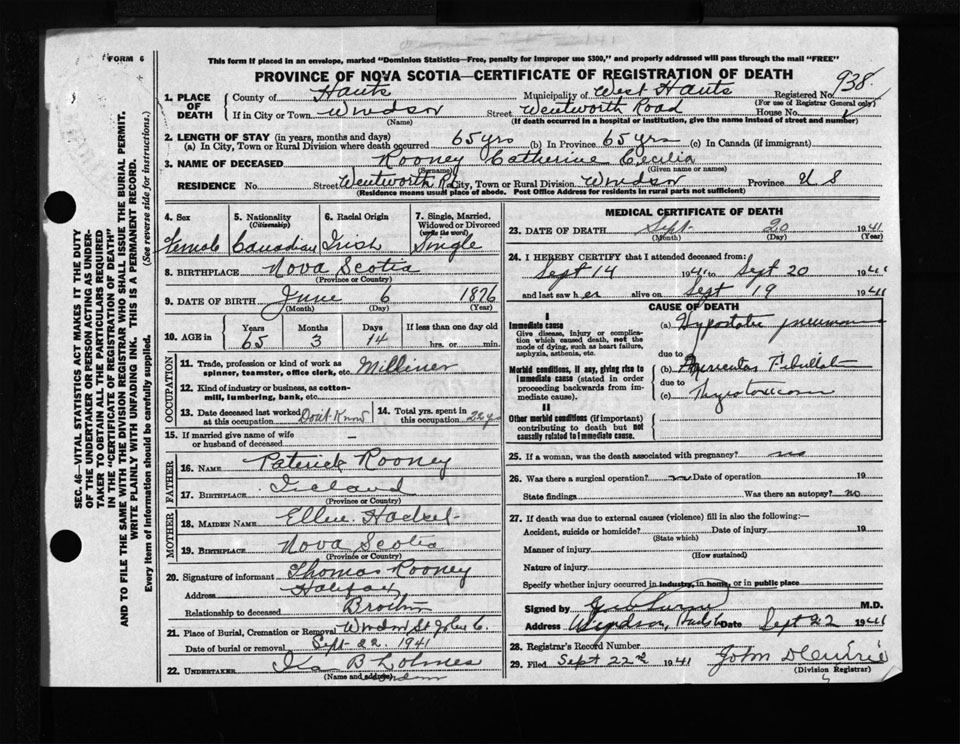 FORM 6
This form if placed in an envelope, marked "Dominion Statistics—Free, penalty for improper use $300," and properly addressed will pass through the mail "FREE"
PROVINCE OF NOVA SCOTIA—CERTIFICATE OF REGISTRATION OF DEATH
938
1. PLACE OF DEATH
County of Hants Municipality of West Hants Registered No.
(For use of Registrar General only)
If in City or Town Windsor Street Wentworth Road House No.
(Name) (If death occurred in a hospital or institution, give the name instead of street and number)
2. LENGTH OF STAY (in years, months and days)
(a) In City, Town or Rural Division where death occurred 65 yrs (b) In Province 65 yrs (c) In Canada (if immigrant)
3. NAME OF DECEASED Rooney Catherine Cecilia
(Surname) (Given name or names)
RESIDENCE No. Street Wentworth Rd City, Town or Rural Division Windsor Province N S
(Residence means usual place of abode. Post Office Address for residents in rural parts not sufficient)
4. Sex Female
5. Nationality (Citizenship) Canadian
6. Racial Origin Irish
7. Single, Married, Widowed or Divorced (write the word) Single
8. BIRTHPLACE Nova Scotia
(Province or Country)
9. DATE OF BIRTH June 6 1876
(Month) (Day) (Year)
10. AGE in Years 65 Months 3 Days 14 If less than one day old hrs. or min.
OCCUPATION
11. Trade, profession or kind of work as spinner, teamster, office clerk, etc. Milliner
12. Kind of industry or business, as cotton-mill, lumbering, bank, etc.
13. Date deceased last worked at this occupation Don't Know
14. Total yrs. spent in this occupation 22 yrs
15. If married give name of wife or husband of deceased —
FATHER
16. NAME Paterick Rooney
17. BIRTHPLACE Ireland
(Province or Country)
MOTHER
18. MAIDEN NAME Ellen
19. BIRTHPLACE Nova Scotia
(Province or Country)
20. Signature of informant Thomas Rooney
Address Halifax
Relationship to deceased Brother
21. Place of Burial, Cremation or Removal Windsor St Johns C.
Date of burial or removal Sept 22 1941
22. UNDERTAKER Ira B Lohnes
(Name and address) Windsor
MEDICAL CERTIFICATE OF DEATH
23. DATE OF DEATH Sept 20 1941
(Month) (Day) (Year)
24. I HEREBY CERTIFY that I attended deceased from:
Sept 14 1941 to Sept 20 1941
and last saw her alive on Sept 19 1941
CAUSE OF DEATH
I
Immediate cause
Give disease, injury or complication which caused death, not the mode of dying, such as heart failure, asphyxia, asthenia, etc.
(a) Hypostatic pneumonia
due to
Morbid conditions, if any, giving rise to immediate cause (stated in order proceeding backwards from immediate cause).
(b) Auricular Fibrillation
due to
(c)
II
Other morbid conditions (if important) contributing to death but not causally related to immediate cause.
25. If a woman, was the death associated with pregnancy? no
26. Was there a surgical operation? no Date of operation 19
State findings Was there an autopsy? no
27. If death was due to external causes (violence) fill in also the following:—
Accident, suicide or homicide? Date of injury 19
(State which)
Manner of injury
(How sustained)
Nature of injury
Specify whether injury occurred in industry, in home, or in public place
Signed by M.D.
Address Windsor, Hants Date Sept 22 1941
28. Registrar's Record Number
29. Filed Sept 22nd 1941 John D Currie
(Division Registrar)
SEC. 46—VITAL STATISTICS ACT MAKES IT THE DUTY
OF THE UNDERTAKER OR PERSON ACTING AS UNDER-
TAKER TO OBTAIN ALL THE PARTICULARS REQUIRED
IN THE "CERTIFICATE OF REGISTRATION OF DEATH"
AND TO FILE THE SAME WITH THE DIVISION REGISTRAR WHO SHALL ISSUE THE BURIAL PERMIT.
WRITE PLAINLY WITH UNFADING INK. THIS IS A PERMANENT RECORD.
Every item of Information should be carefully supplied. (See reverse side for instructions.)